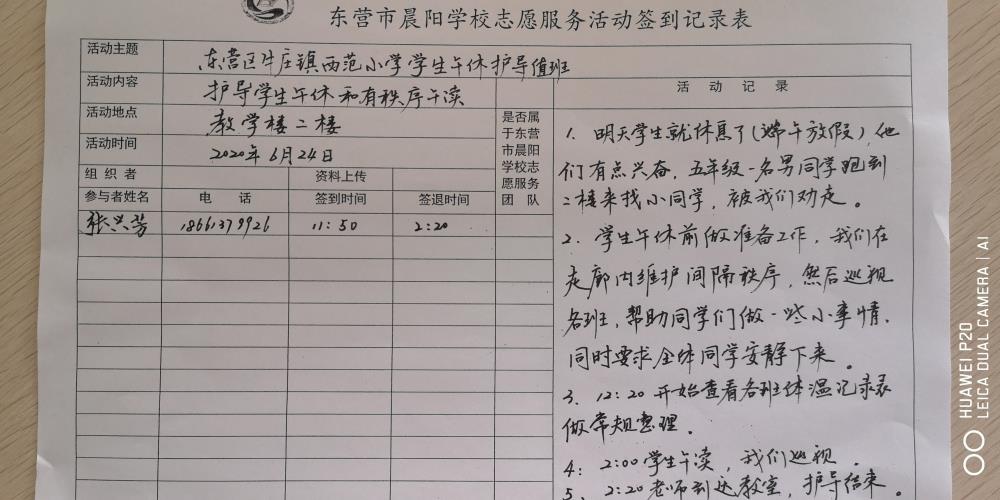 东营市晨阳学校志愿服务活动签到记录表
活动主题 东营区牛庄镇西范小学学生午休护导值班
活动内容 护导学生午休和有秩序午读
活动地点 教学楼二楼
活动时间 2020年6月24日
组织者 资料上传
参与者姓名 电话 签到时间 签退时间
张兴芳 18661379926 11:50 2:20
是否属
于东营
市晨阳
学校志
愿服务
团队
活动记录
1. 明天学生就休息了(端午放假)他
们有点兴奋,五年级一名男同学跑到
二楼来找小同学,被我们劝走。
2. 学生午休前做准备工作,我们在
走廊内维护间隔秩序,然后巡视
各班,帮助同学们做一些小事情,
同时要求全体同学安静下来。
3. 12:20开始查看各班体温记录表
做常规整理。
4: 2:00学生午读,我们巡视。
5、2:20老师到达教室,护导结束。
HUAWEI P20
LEICA DUAL CAMERA | AI